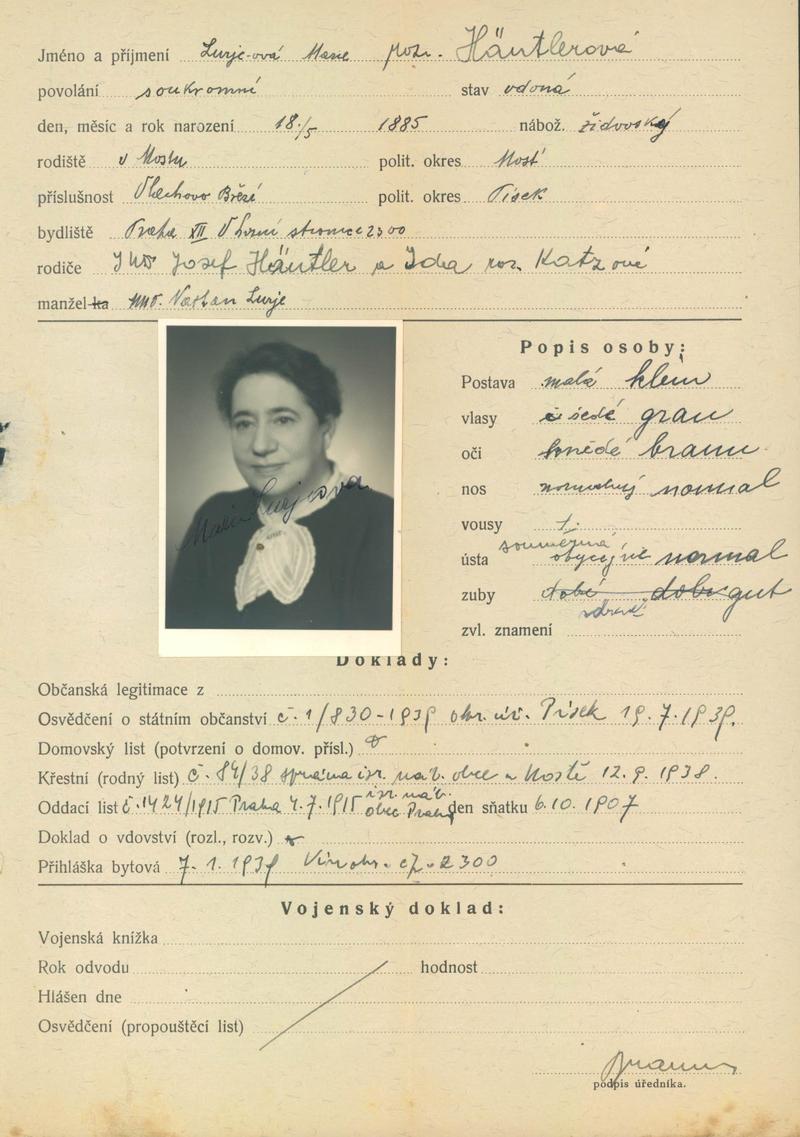 Jméno a příjmení Lurje-ová Marie roz. Häutlerová
povolání soukromní stav vdova
den, měsíc a rok narození 18./5 1885 nábož. židovský
rodiště v Mostu polit. okres Most
příslušnost Vlachovo Březí polit. okres Písek
bydliště Praha XII 2300
rodiče Josef Häutler a Ida roz. Katzové
manžel-ka Lurje
Popis osoby:
Postava malá klein
vlasy šedé grau
oči hnědé braun
nos normální normal
vousy
ústa souměrná obyčejné normal
zuby dobré gut
zdravé
zvl. znamení
Marie Lurjeova
Doklady:
Občanská legitimace z
Osvědčení o státním občanství č. 1/830-1939 okr. úř. Písek 19.7.1939.
Domovský list (potvrzení o domov. přísl.)
Křestní (rodný list) č. 84/38 správa isr. náb. obce v Mostě 12.9.1938.
Oddací list č. 1424/1915 Praha 4.7.1915 isr. náb. obec Praha den sňatku 6.10.1907
Doklad o vdovství (rozl., rozv.)
Přihláška bytová 7.1.1939 Vinohr. čp. 2300
Vojenský doklad:
Vojenská knížka
Rok odvodu hodnost
Hlášen dne
Osvědčení (propouštěcí list)
podpis úředníka.